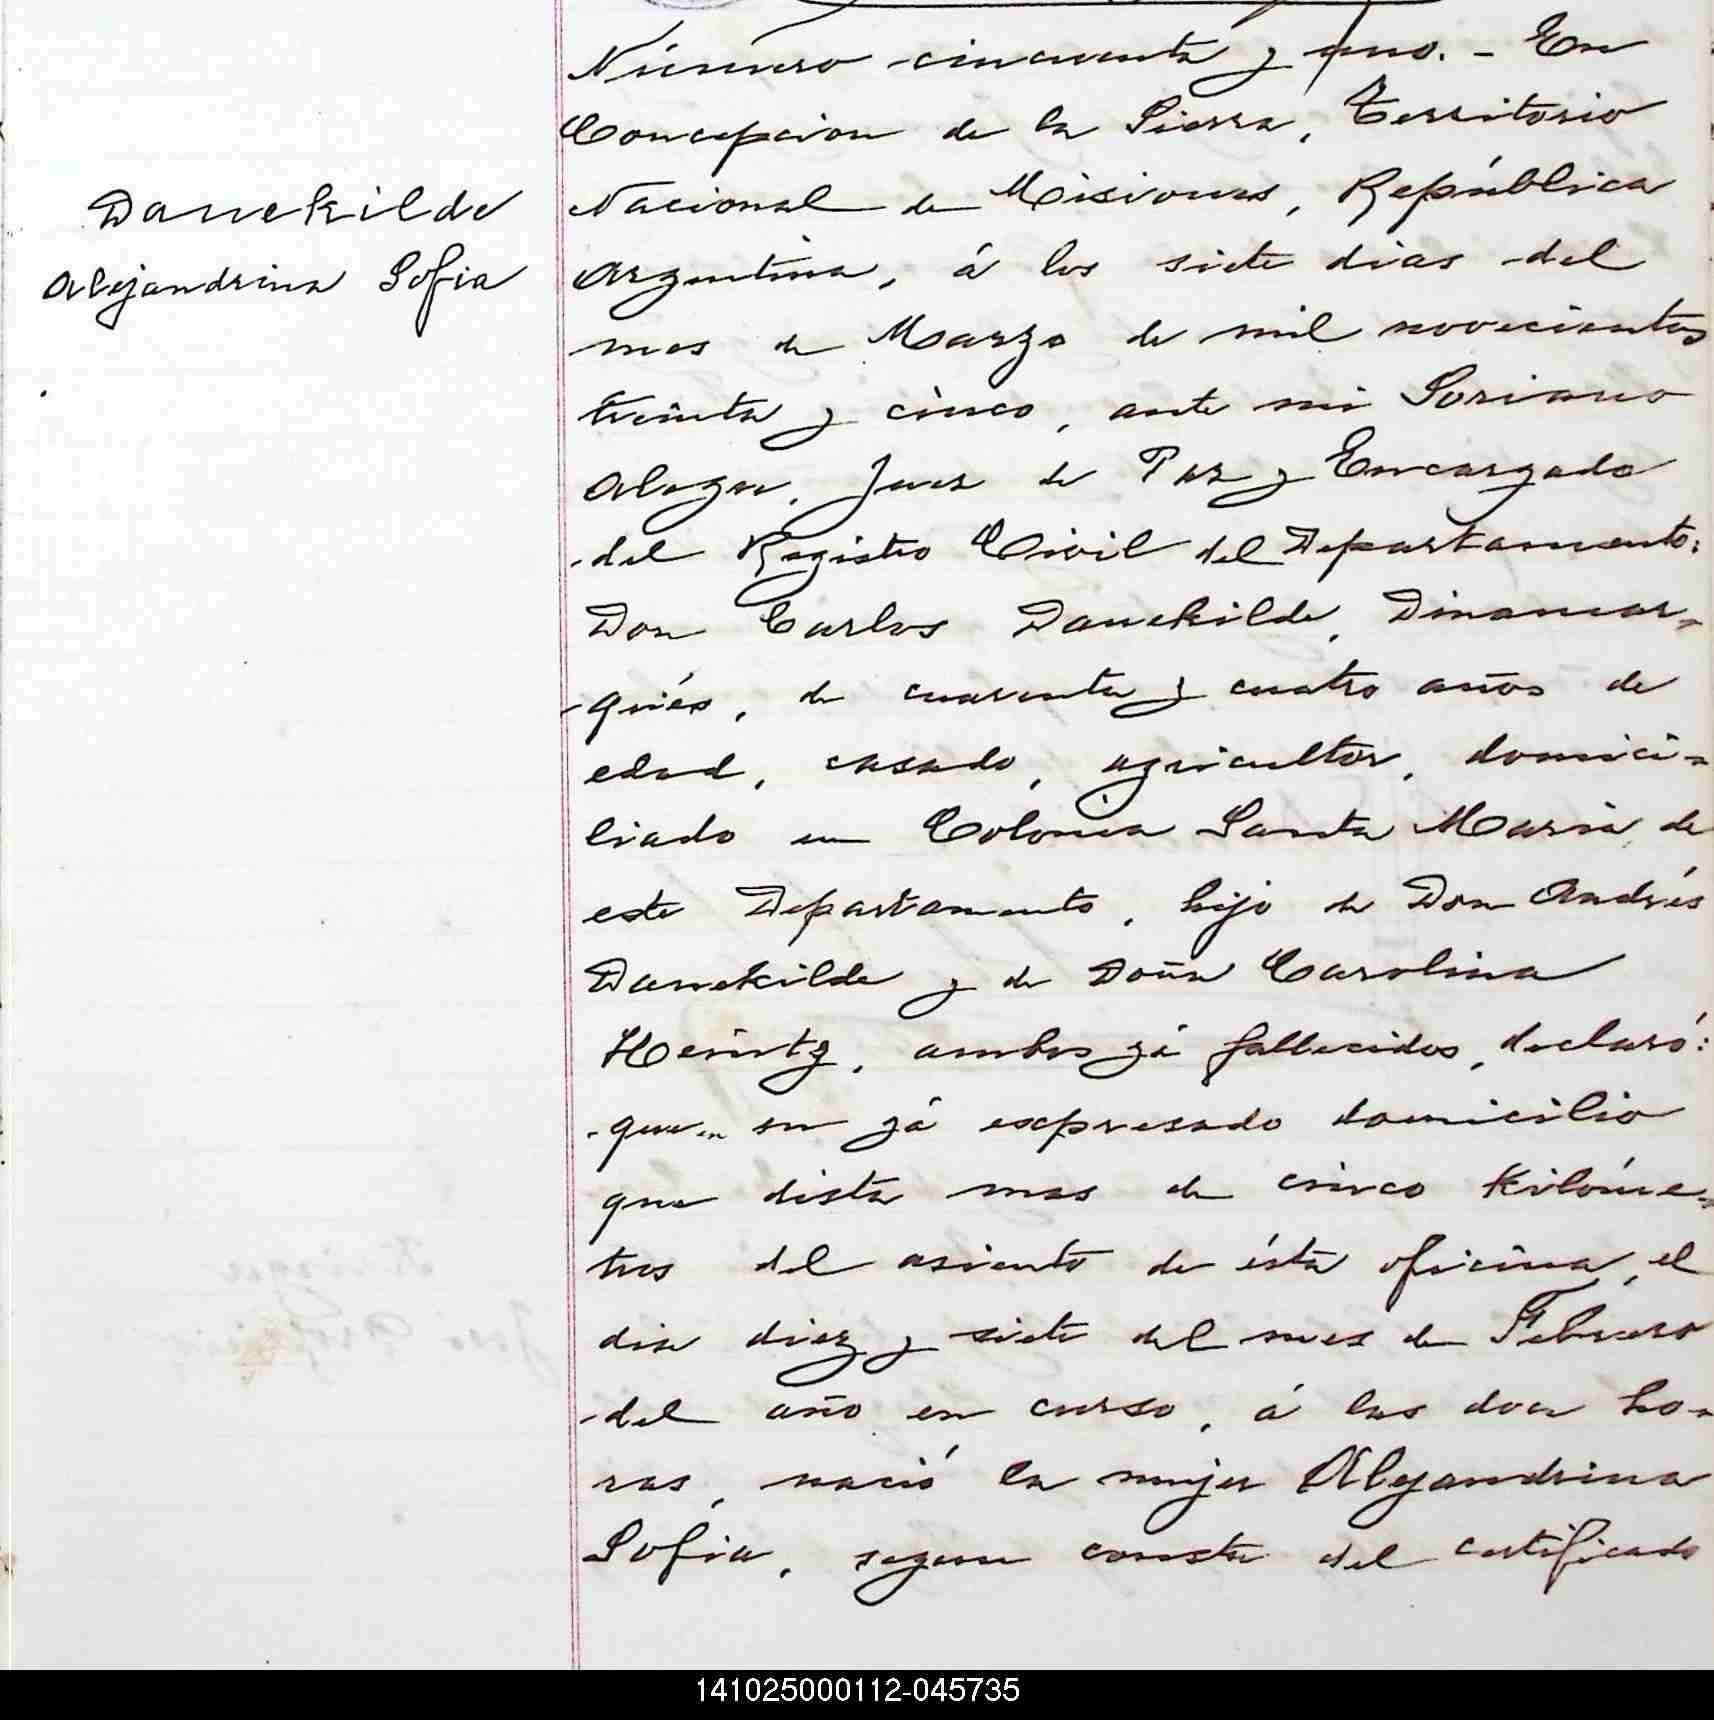 Danekilde
Alejandrina Sofia
Número cincuenta y uno. - En
Concepcion de la Sierra, Territorio
Nacional de Misiones, República
Argentina, á los siete dias del
mes de Marzo de mil novecientos
treinta y cinco, ante mi Soriano
Juez de Paz y Encargado
del Registro Civil del Departamento:
Don Carlos Danekilde, Dinamar-
qués, de cuarenta y cuatro años de
edad, casado, agricultor, domici-
liado en Colonia Santa Maria, de
este Departamento, hijo de Don Andrés
Danekilde y de Doña Carolina
Heintz, ambos yá fallecidos, declaró:
que en su yá expresado domicilio
que dista mas de cinco Kilóme-
tros del asiento de ésta oficina, el
dia diez y siete del mes de Febrero
del año en curso, á las doce ho-
ras, nació la mujer Alejandrina
Sofia, segun consta del certificado
141025000112-045735